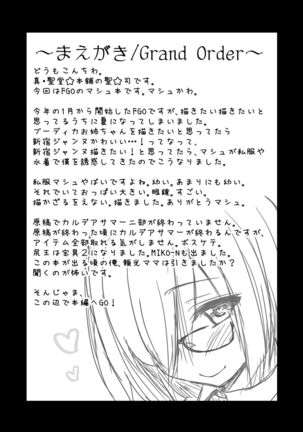 ～まえがき/Grand Order～
どうもこんちわ。
真・聖堂☆本舗の聖☆司です。
今回はFGOのマシュ本です。マシュかわ。
今年の1月から開始したFGOですが、描きたい描きたいと
思ってるうちに夏になってしまいました。
ブーディカお姉ちゃんを描きたいと思ってたら
新宿ジャンヌかわいい…！ってなって、
新宿ジャンヌ描きたい！と思ってたら、マシュが私服や
水着で僕を誘惑してきたのでこうなりました。
私服マシュやばいですよね。幼い。あまりにも幼い。
それでいておっぱい大きい。眼鏡。すごい。
描かざるをえない。描きました。ありがとうマシュ。
原稿でカルデアサマー二部が終わっていません。
原稿が終わった頃にカルデアサマーが終わるんですが、
アイテム全部取れる気がしません。ボスケテ。
尻王は宝具2になりました。MIKO-Nも出ました。
この本が出る頃の俺、頼光ママは引きましたか？
聞くのが怖いです。
そんじゃま、
この辺で本編へGO！